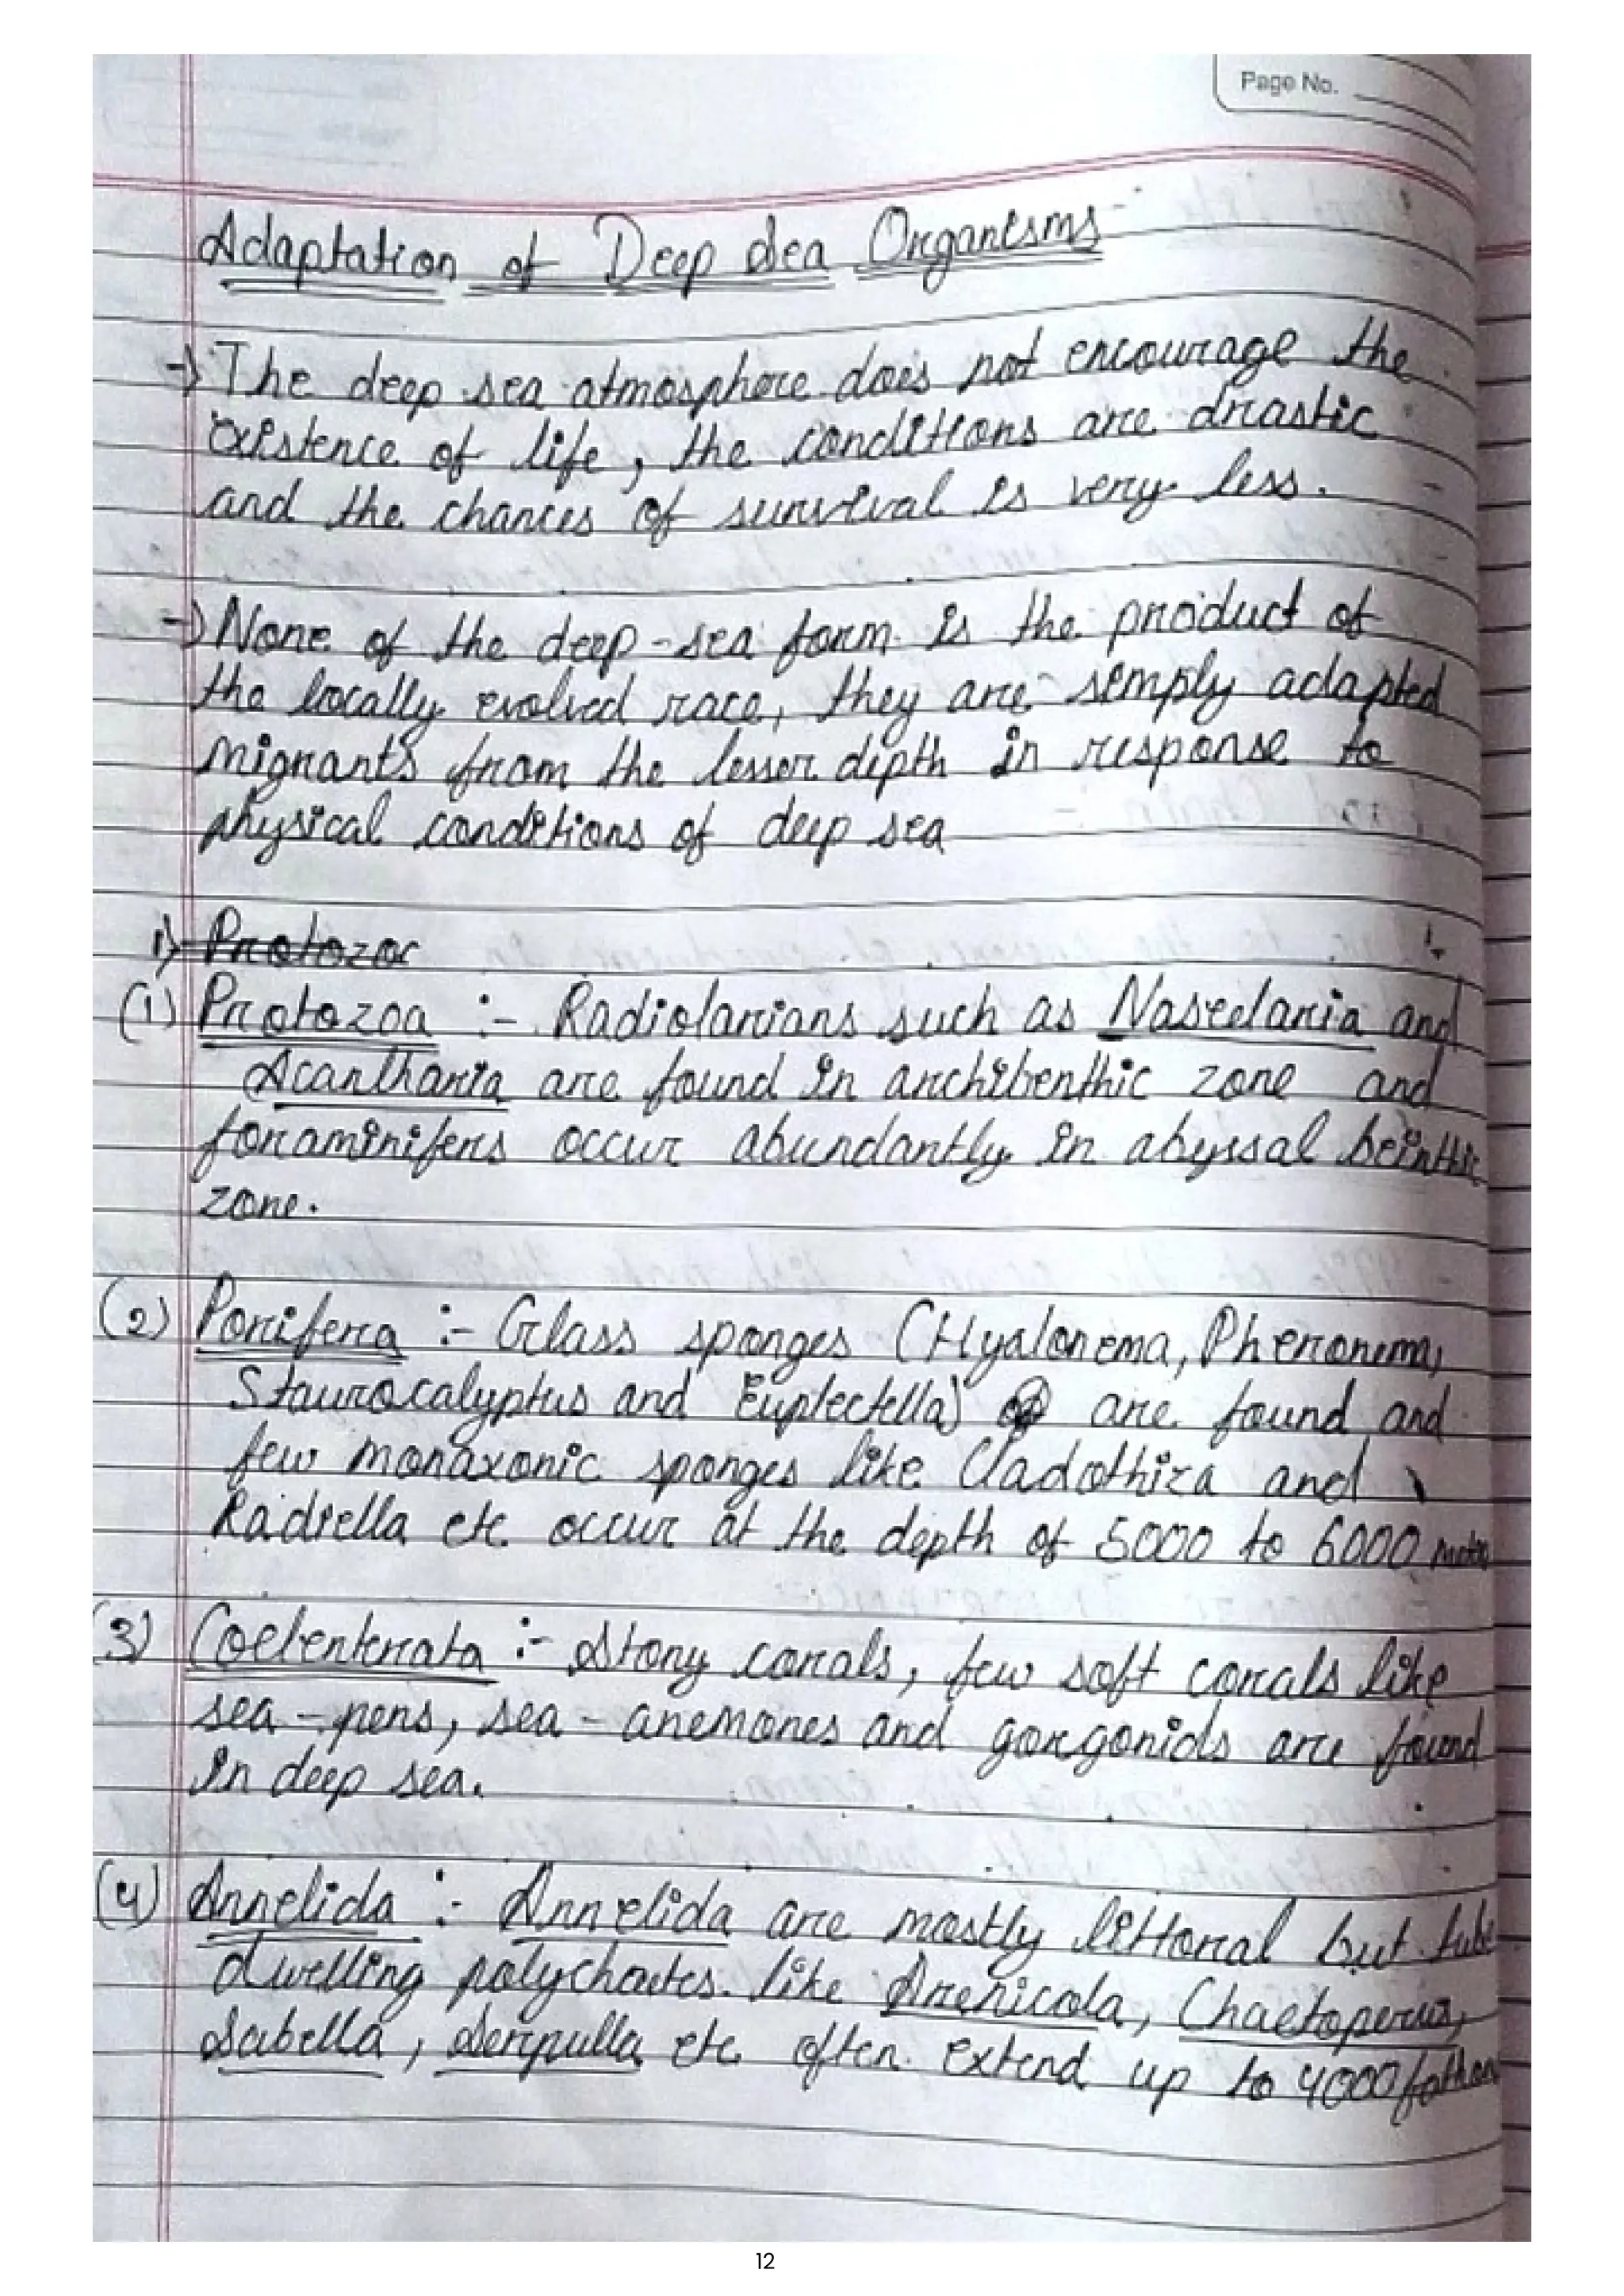 Page No.
Adaptation of Deep Sea Organisms-
→ The deep sea atmosphere does not encourage the
existence of life, the conditions are drastic
and the chances of survival is very less.
→ None of the deep-sea form is the product of
the locally evolved race, they are simply adapted
migrants from the lesser depth in response to
physical conditions of deep sea
1) Protozoa
(1) Protozoa :- Radiolarians such as Nascelaria and
Acantharia are found in archibenthic zone and
foraminifers occur abundantly in abyssal beinthic
zone.
(2) Porifera :- Glass sponges (Hyalonema, Pheronema,
Staurocalyptus and Euplectella) are found and
few monaxonic sponges like Cladothiza and
Radiella etc. occur at the depth of 5000 to 6000 meters
(3) Coelenterata :- Stony corals, few soft corals like
sea-pens, sea-anemones and gorgonids are found
in deep sea.
(4) Annelida :- Annelida are mostly littoral but tube
dwelling polychaetes like Arenicola, Chaetoperus,
Sabella, Serpulla etc often extend up to 4000 fathoms
12